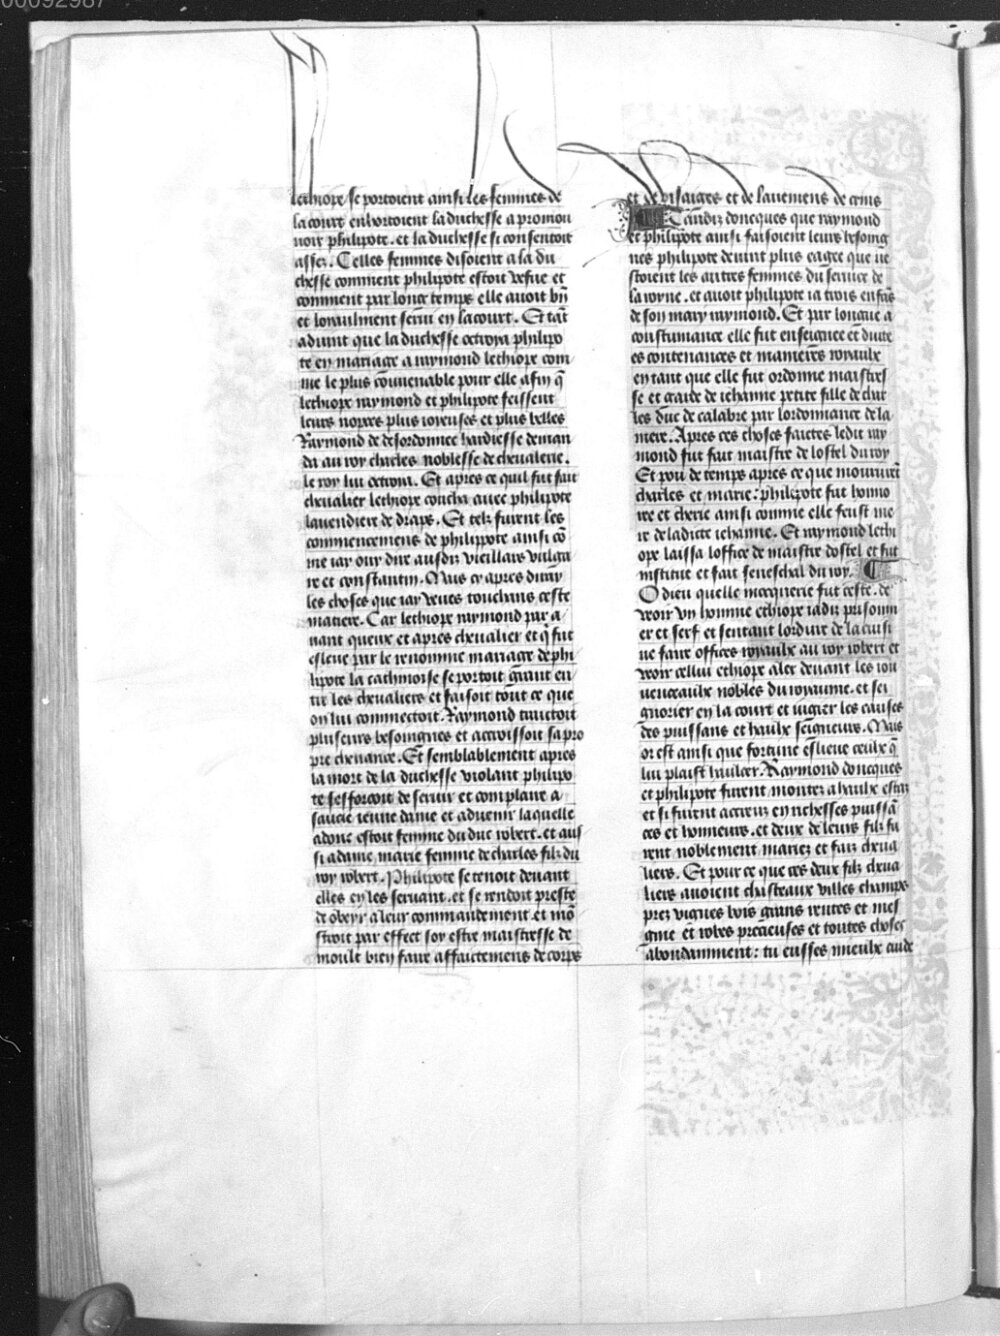 00092987
lethiope se portoient ainsi les femmes de
la court enhortoient la duchesse a promou
uoir philipote. et la duchesse si consentoit
assez. Celles femmes disoient a la du
chesse comment philipote estoit vefue et
comment par long temps elle auoit biẽ
et loyaulment serui en la court. Et tãt
aduint que la duchesse octroya philipo
te en mariage a raymond lethiope com
me le plus cõuuenable pour elle afin q̃
lethiope raymond et philipote feissent
leurs nopces plus ioyeuses et plus belles
Raymond de desordonnee hardiesse deman
da au roy charles noblesse de cheualerie.
le roy lui octroia. Et apres ce quil fut fait
cheualier lethiope coucha auec philipote
lauendiere de draps. Et telz furent les
commencemens de philipote ainsi cõ
me iay ouy dire ausdiz vieillars vulga
re et constantin. Mais cy apres diray
les choses que iay veues touchans ceste
matiere. Car lethiope raymond par a
uant queux et apres cheualier et q̃ fut
esleue par le renomme mariage de phi
lipote la cathinoise se portoit grant en
tre les cheualiers et faisoit tout ce que
on lui commectoit. Raymond traictoit
pluseurs besoingnes et accroissoit sa pro
pre cheuance. Et semblablement apres
la mort de la duchesse violant philipo
te sefforcoit de seruir et complaire a
sancie ieune dame et aduenir laquelle
adonc estoit femme du duc robert. et aus
si a dame marie femme de charles filz du
roy robert. Philipote se tenoit deuant
elles en les seruant. et se rendoit preste
de obeyr a leur commandement. et mõ
stroit par effect soy estre maistresse de
moult bien faire affaictemens de corps
et de visaiges et de lauemens de crins
Tandiz doncques que raymond
et philipote ainsi faisoient leurs besoing
nes philipote deuint plus eagee que ne
stoient les autres femmes du seruice de
la royne. et auoit philipote ia trois enfãs
de son mary raymond. Et par longue a
coustumance elle fut enseignee et duite
es contenances et manieres royaulx
en tant que elle fut ordonne maistres
se et garde de iehanne petite fille de char
les duc de calabre par lordonnance de la
mere. Apres ces choses faictes ledit ray
mond fut fait maistre de lostel du roy
Et pou de temps apres ce que moururẽt
charles et marie: philipote fut honno
ree et cherie ainsi comme elle feust me
re de ladicte iehanne. Et raymond lethi
ope laissa loffice de maistre dostel et fut
institue et fait seneschal du roy.
O dieu quelle mocquerie fut ceste. de
veoir vn homme ethiope iadiz prisonni
er et serf et sentant lordure de la cuisi
ne faire offices royaulx au roy robert et
veoir cellui ethiope aler deuant les iou
uenceaulx nobles du royaume. et sei
gnorier en la court et iugier les causes
des puissans et haulx seigneurs. Mais
or est ainsi que fortune eslieue ceulx q̃
lui plaist haulcer. Raymond doncques
et philipote furent montez a haulx estaz
et si furent accreuz en richesses puissã
ces et honneurs. et deux de leurs filz fu
rent noblement mariez et faiz cheua
liers. Et pour ce que ces deux filz cheua
liers auoient chasteaux villes champs
prez vignes bois grans rentes et mes
gnie et robes precieuses et toutes choses
abondamment: tu eusses mieulx cuide